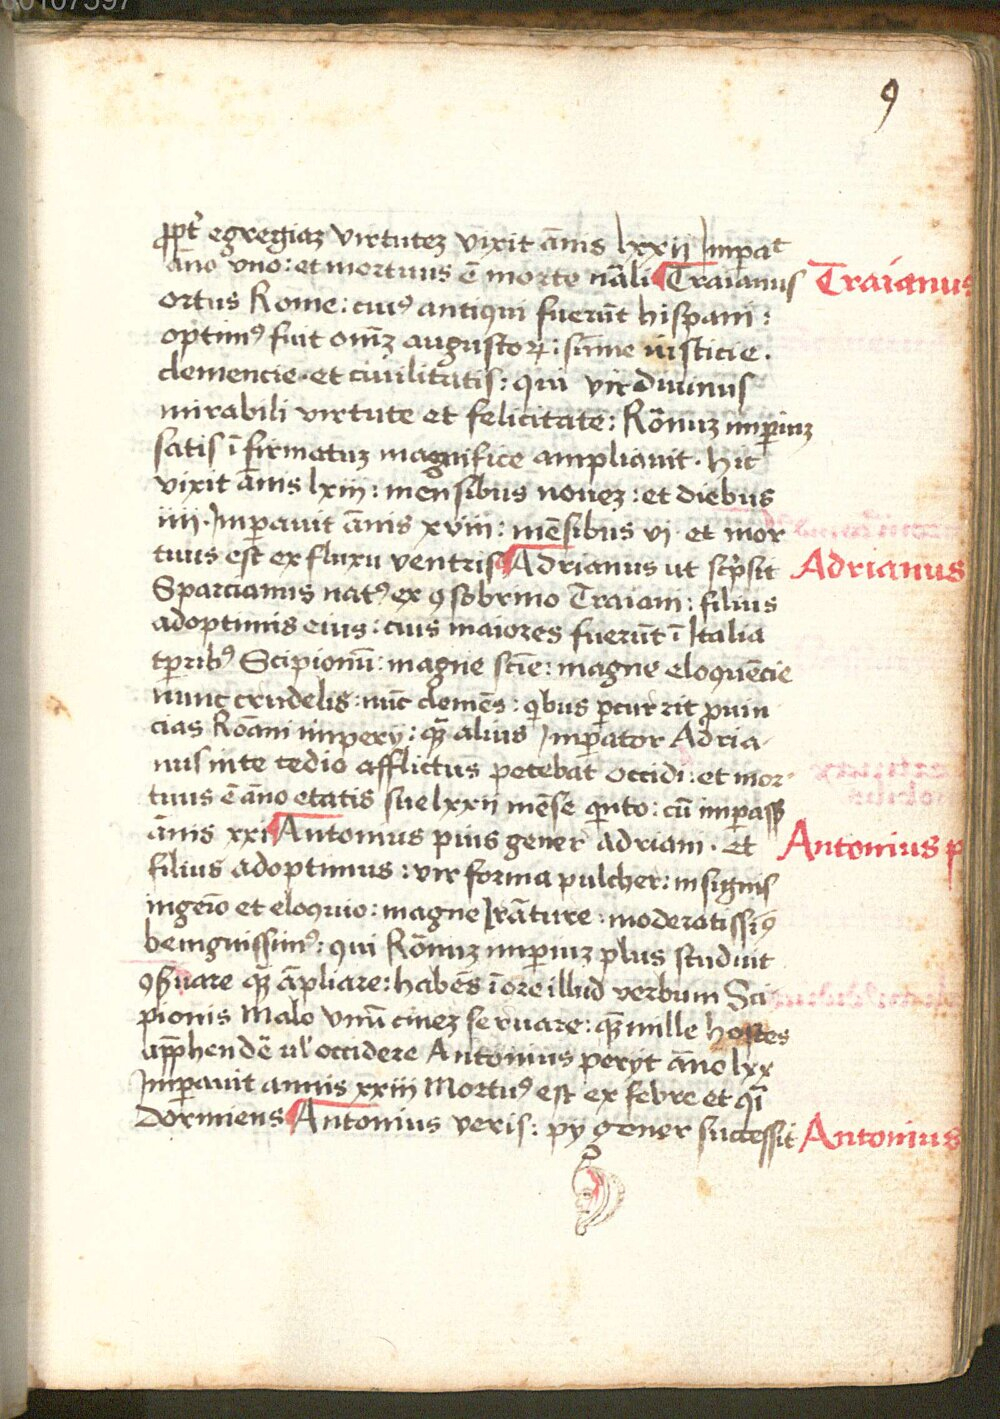 00107397
9
ꝓpt̄ egregiaz virtutez vixit ān̄is lxxij Impat
āno vno: et mortuus ē morte nāli Traianus
Traianus
ortus Rome: cuiꝰ antiqui fuerūt hispani:
optimꝰ fuit om̄iz augustoꝝ: sūme iusticie.
clemencie. et ciuilitatis: qui vir diuinus
mirabili virtute et felicitate: Rōnuz imꝑiuz
satis īfirmatuz magnifice ampliauit. hic
vixit ān̄is lxiii: mensibus nouez: et diebus
iiii. Imꝑauit ān̄is xviii: mēsibus vj. et mor
tuus est ex fluxu ventris Adrianus ut scp̄sit
Adrianus
Sparcianus natꝰ ex ꝯsobrino Traiani: filius
adoptiuus eius: cuius maiores fuerūt ī Italia
tꝑribꝰ Scipionū: magne scīe: magne eloquēcie
nunc crudelis: nūc clemēs: qibus ꝑcurrit ꝓuin
cias Rōani imperij: qz alius Imꝑator Adria
nus inte tedio afflictus petebat occidi: et mor
tuus ē āno etatis sue lxxii mēse qinto: cū imꝑass&
ān̄is xxi Antonius pius gener adriani. et
Antonius p
filius adoptiuus: vir forma pulcher: insignis
ingeīo et eloquio: magne lrāture: moderatissīꝰ
benignissimꝰ: qui Rōnuz imꝑiuz plus studuit
ꝯſuare qz āpliare: habēs ī ore illud verbum Sci
pionis Malo vnū ciuez seruare: qz mille hostes
appħendē ul' occidere Antonius perijt āno lxx
Imꝑauit annis xxiii Mortuꝰ est ex febre et qī
dormiens Antonius veris: pij gener successit
Antonius